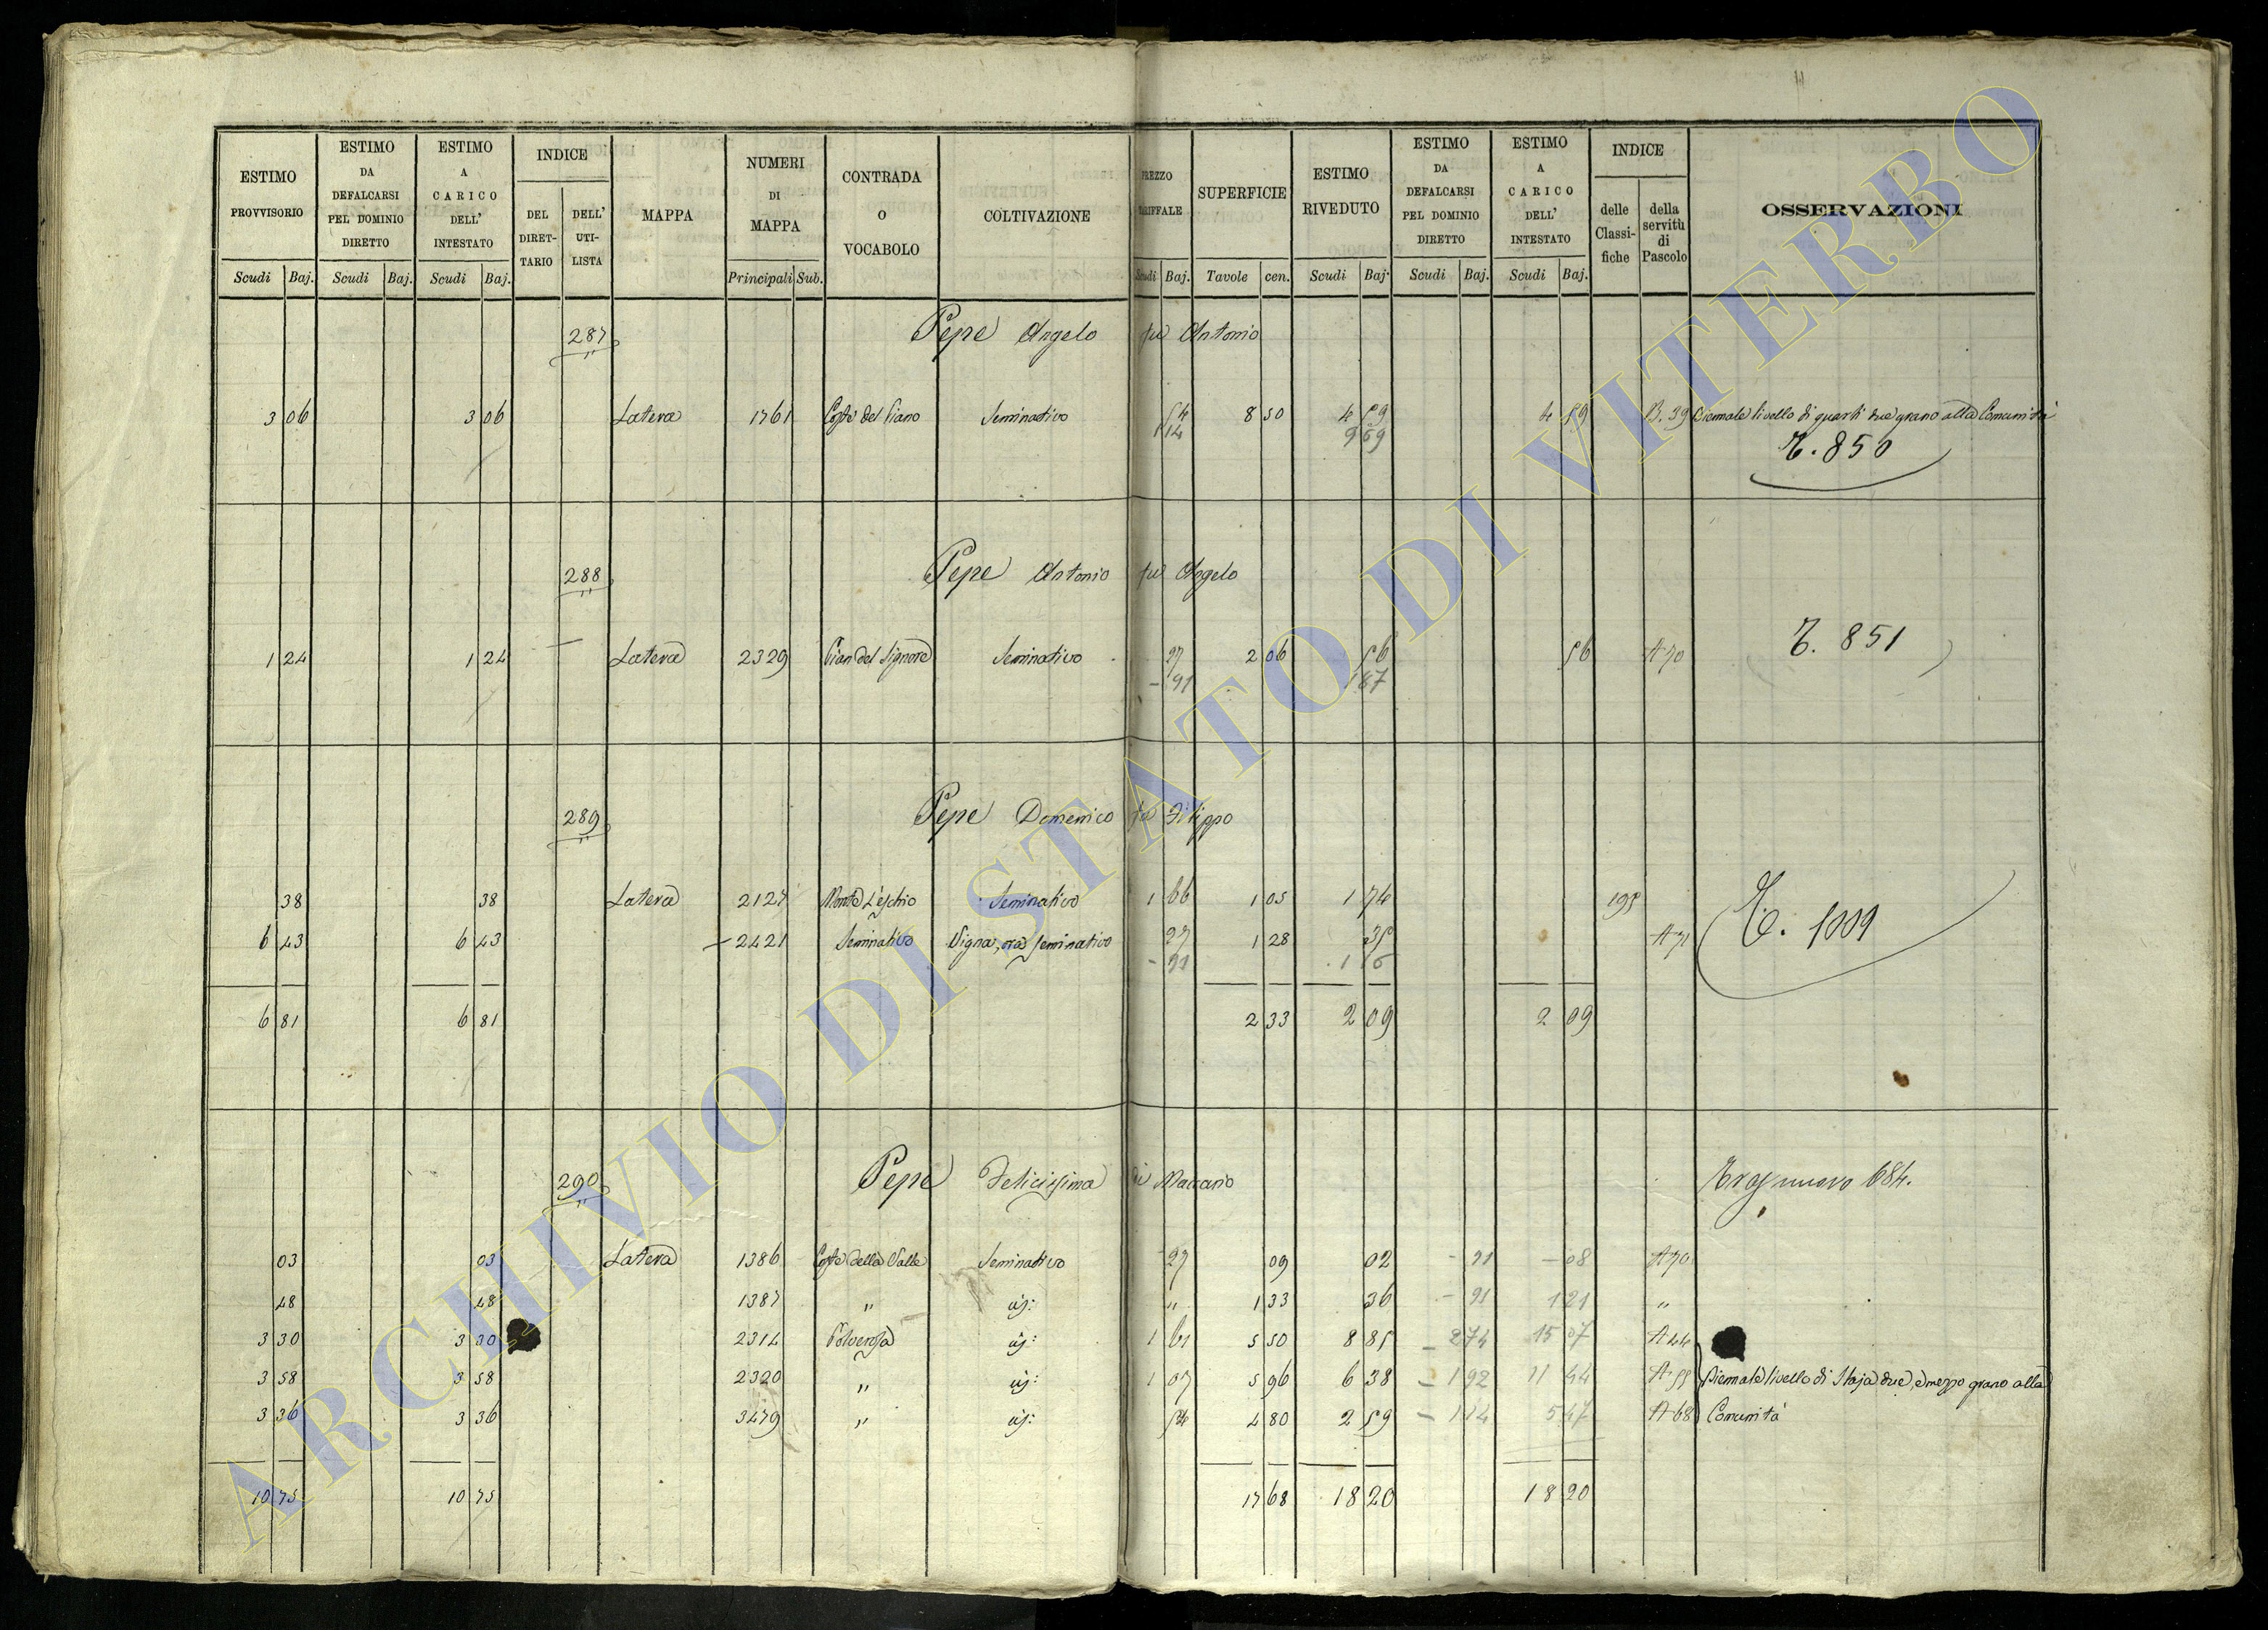 ESTIMO PROVVISORIO Scudi Baj. | ESTIMO DA DEFALCARSI PEL DOMINIO DIRETTO Scudi Baj. | ESTIMO A CARICO DELL' INTESTATO Scudi Baj. | INDICE DEL DIRETTARIO DELL' UTILISTA | MAPPA | NUMERI DI MAPPA Principali Sub. | CONTRADA O VOCABOLO | COLTIVAZIONE | PREZZO TARIFFALE Scudi Baj. | SUPERFICIE Tavole cen. | ESTIMO RIVEDUTO Scudi Baj. | ESTIMO DA DEFALCARSI PEL DOMINIO DIRETTO Scudi Baj. | ESTIMO A CARICO DELL' INTESTATO Scudi Baj. | INDICE delle Classifiche della servitù di Pascolo | OSSERVAZIONI
287 Pepe Angelo fu Antonio
3 06 3 06 Latera 1761 Coste del Piano Seminativo 54 8 50 4 59 4 59 B.39 Biennale livello di quarti due grano alla Comunità
1 14 9 69 T. 850
288 Pepe Antonio fu Angelo
1 24 1 24 Latera 2329 Pian del Signore Seminativo 27 2 06 56 56 A 70 T. 851
- 91 1 87
289 Pepe Domenico fu Filippo
38 38 Latera 2127 Monte L'eschio Seminativo 1 66 1 05 1 74 195
6 43 6 43 2421 Seminativo Vigna, ora seminativo 27 1 28 35 A 71 T. 1009
- 91 1 16
6 81 6 81 2 33 2 09 2 09
290 Pepe Felicissima di Macario nuovo 684.
03 03 Latera 1386 Coste della Valle Seminativo 27 09 02 - 91 - 08 A 70
48 48 1387 " id: " 1 33 36 - 91 1 21 "
3 30 3 30 2314 Polverosa id: 1 61 5 50 8 85 2 74 15 07 A 44
3 58 3 58 2320 " id: 1 07 5 96 6 38 1 92 11 44 A 55 Biennale livello di Staja due, e mezzo grano alla
3 36 3 36 3479 " id: 54 4 80 2 59 1 14 5 47 A 68 Comunità
10 75 10 75 17 68 18 20 18 20
ARCHIVIO DI STATO DI VITERBO